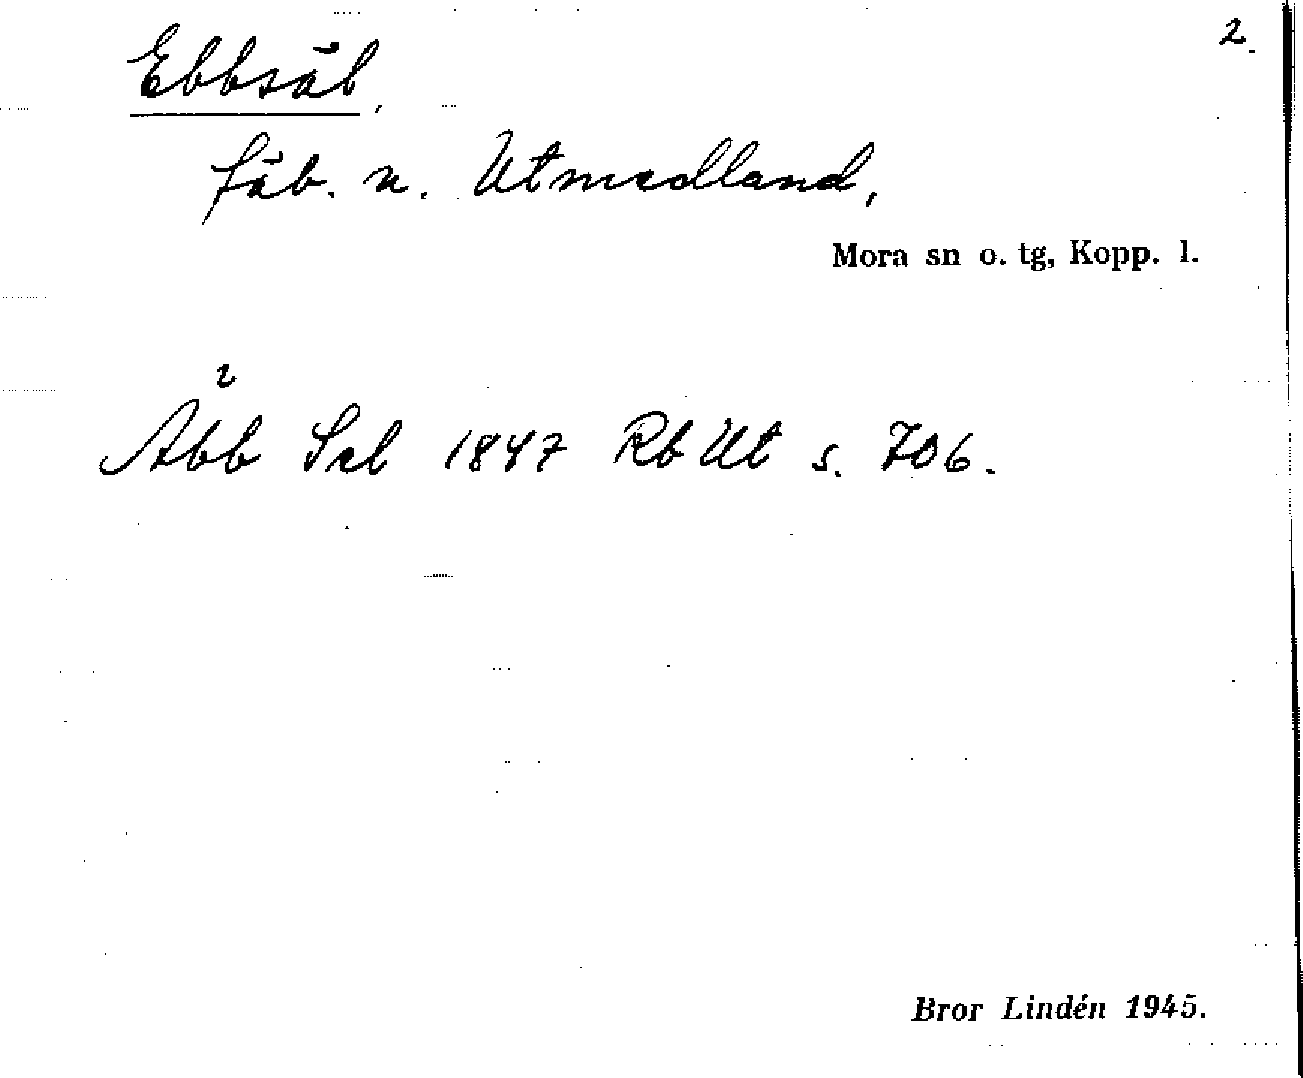 2.
Ebbsäl,
fäb. u. Utmedland,
Mora sn o. tg, Kopp. l.
Äbb Sel 1847 Rb Ut s. 706.
Bror Lindén 1945.